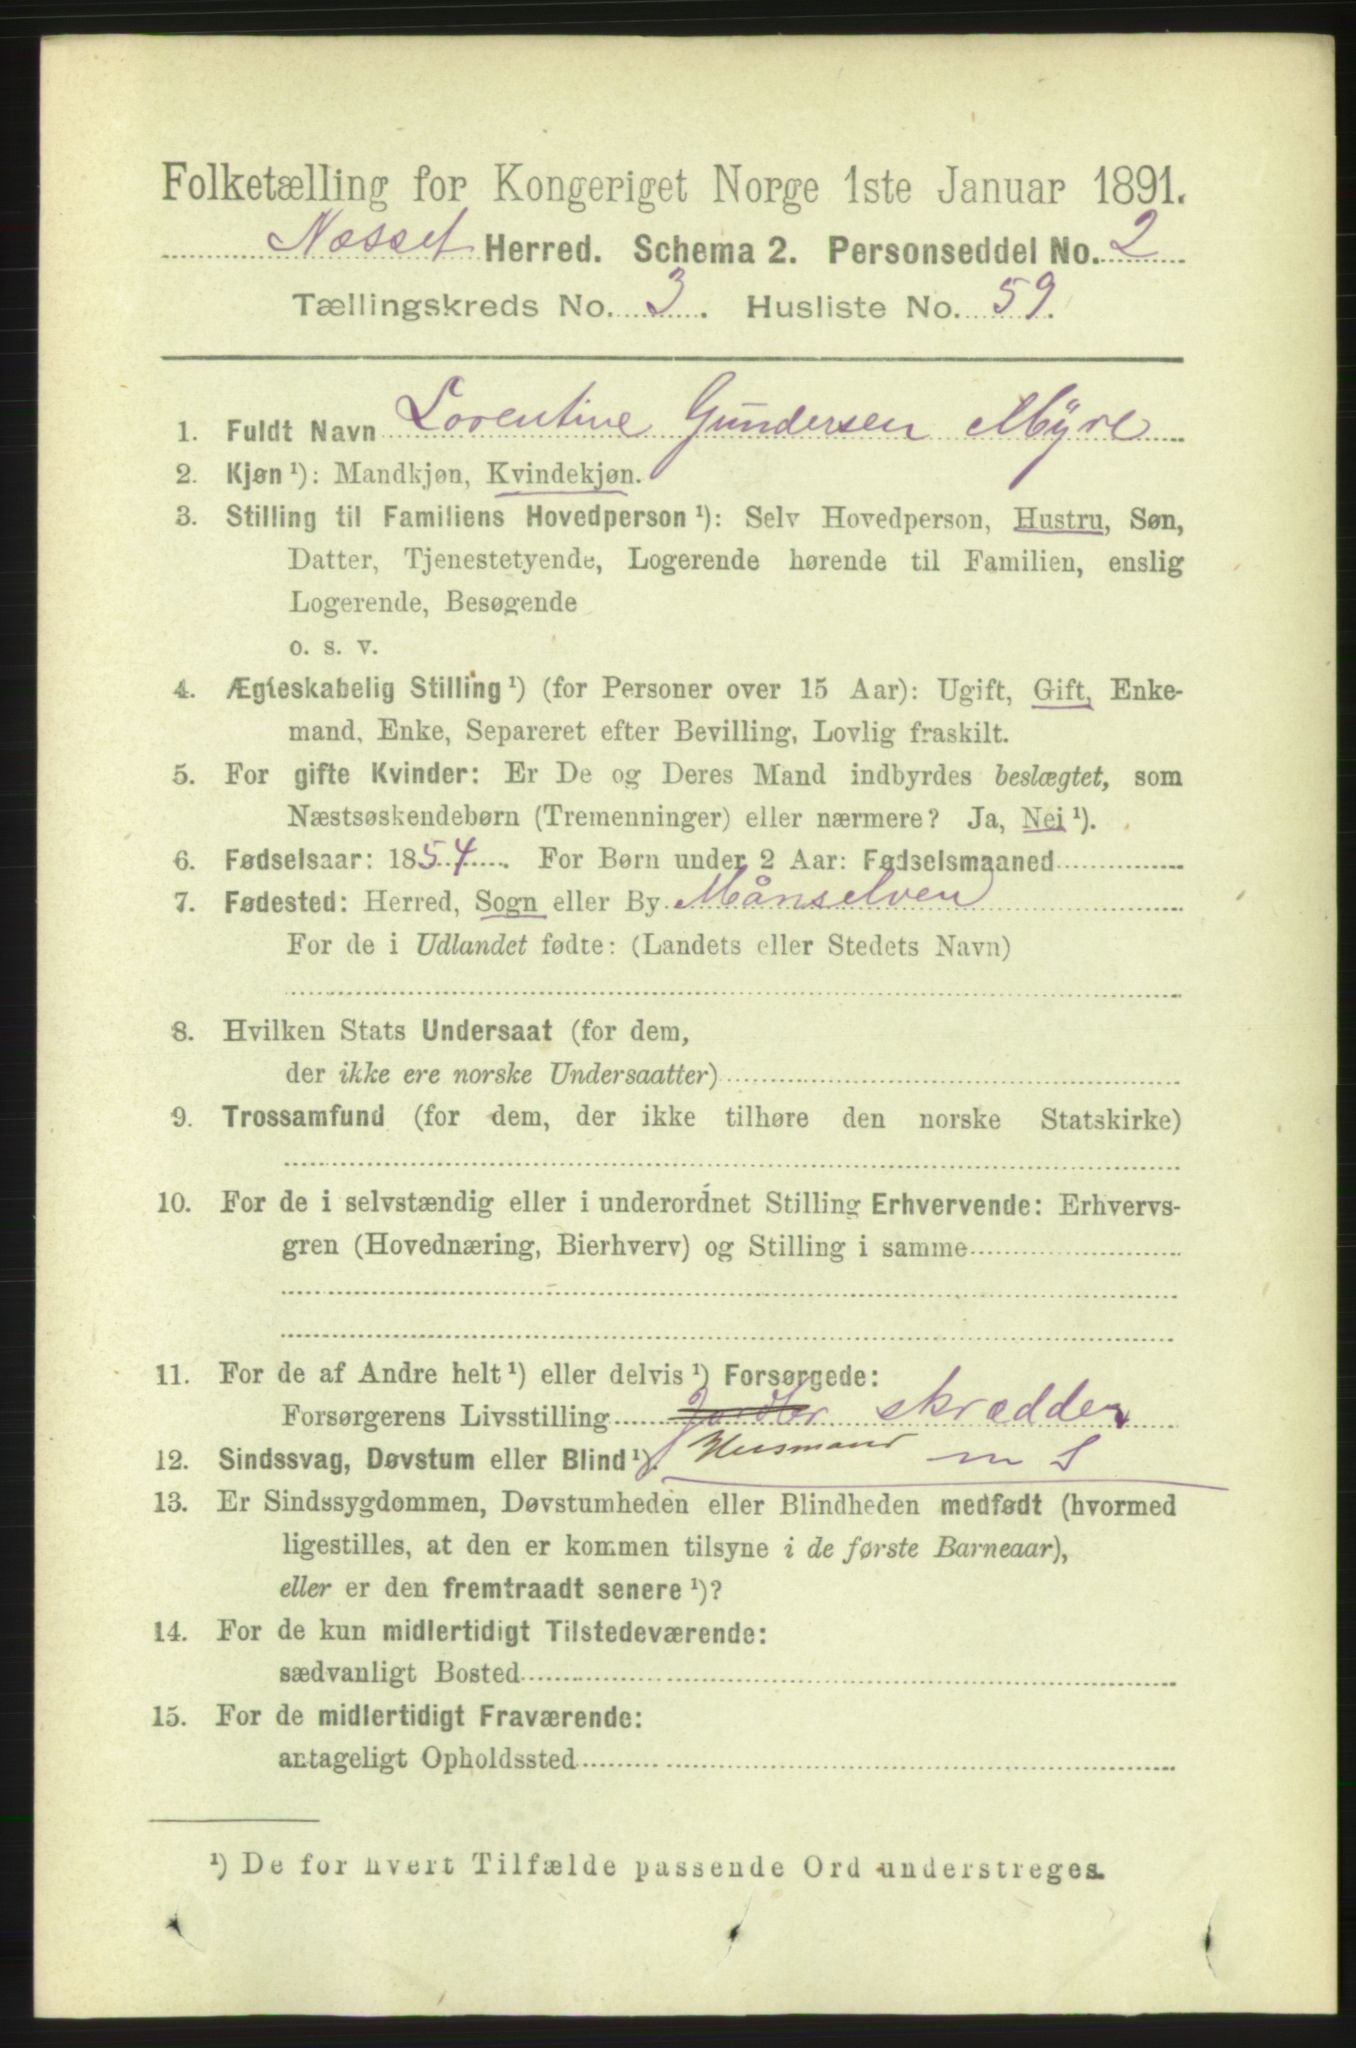 Folketælling for Kongeriget Norge 1ste Januar 1891.
Næsset Herred. Schema 2. Personseddel No. 2
Tællingskreds No. 3. Husliste No. 59.
1. Fuldt Navn Lorentine Gundersen Myre
2. Kjøn ¹): Mandkjøn, Kvindekjøn.
3. Stilling til Familiens Hovedperson ¹): Selv Hovedperson, Hustru, Søn,
Datter, Tjenestetyende, Logerende hørende til Familien, enslig
Logerende, Besøgende
o. s. v.
4. Ægteskabelig Stilling ¹) (for Personer over 15 Aar): Ugift, Gift, Enke-
mand, Enke, Separeret efter Bevilling, Lovlig fraskilt.
5. For gifte Kvinder: Er De og Deres Mand indbyrdes beslægtet, som
Næstsøskendebørn (Tremenninger) eller nærmere? Ja, Nei ¹).
6. Fødselsaar: 1854. For Børn under 2 Aar: Fødselsmaaned
7. Fødested: Herred, Sogn eller By Månselven
For de i Udlandet fødte: (Landets eller Stedets Navn)
8. Hvilken Stats Undersaat (for dem,
der ikke ere norske Undersaatter)
9. Trossamfund (for dem, der ikke tilhøre den norske Statskirke)
10. For de i selvstændig eller i underordnet Stilling Erhvervende: Erhvervs-
gren (Hovednæring, Bierhverv) og Stilling i samme
11. For de af Andre helt ¹) eller delvis ¹) Forsørgede:
Forsørgerens Livsstilling skrædder
12. Sindssvag, Døvstum eller Blind ¹). Husmand m S
13. Er Sindssygdommen, Døvstumheden eller Blindheden medfødt (hvormed
ligestilles, at den er kommen tilsyne i de første Barneaar),
eller er den fremtraadt senere ¹)?
14. For de kun midlertidigt Tilstedeværende:
sædvanligt Bosted
15. For de midlertidigt Fraværende:
antageligt Opholdssted
¹) De for hvert Tilfælde passende Ord understreges.